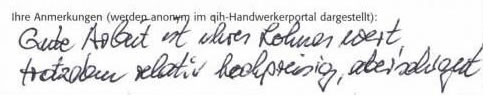 Ihre Anmerkungen (werden anonym im qih-Handwerkerportal dargestellt):
Gute Arbeit ist ihren Lohnes wert
trotzdem relativ hochpreisig, aber